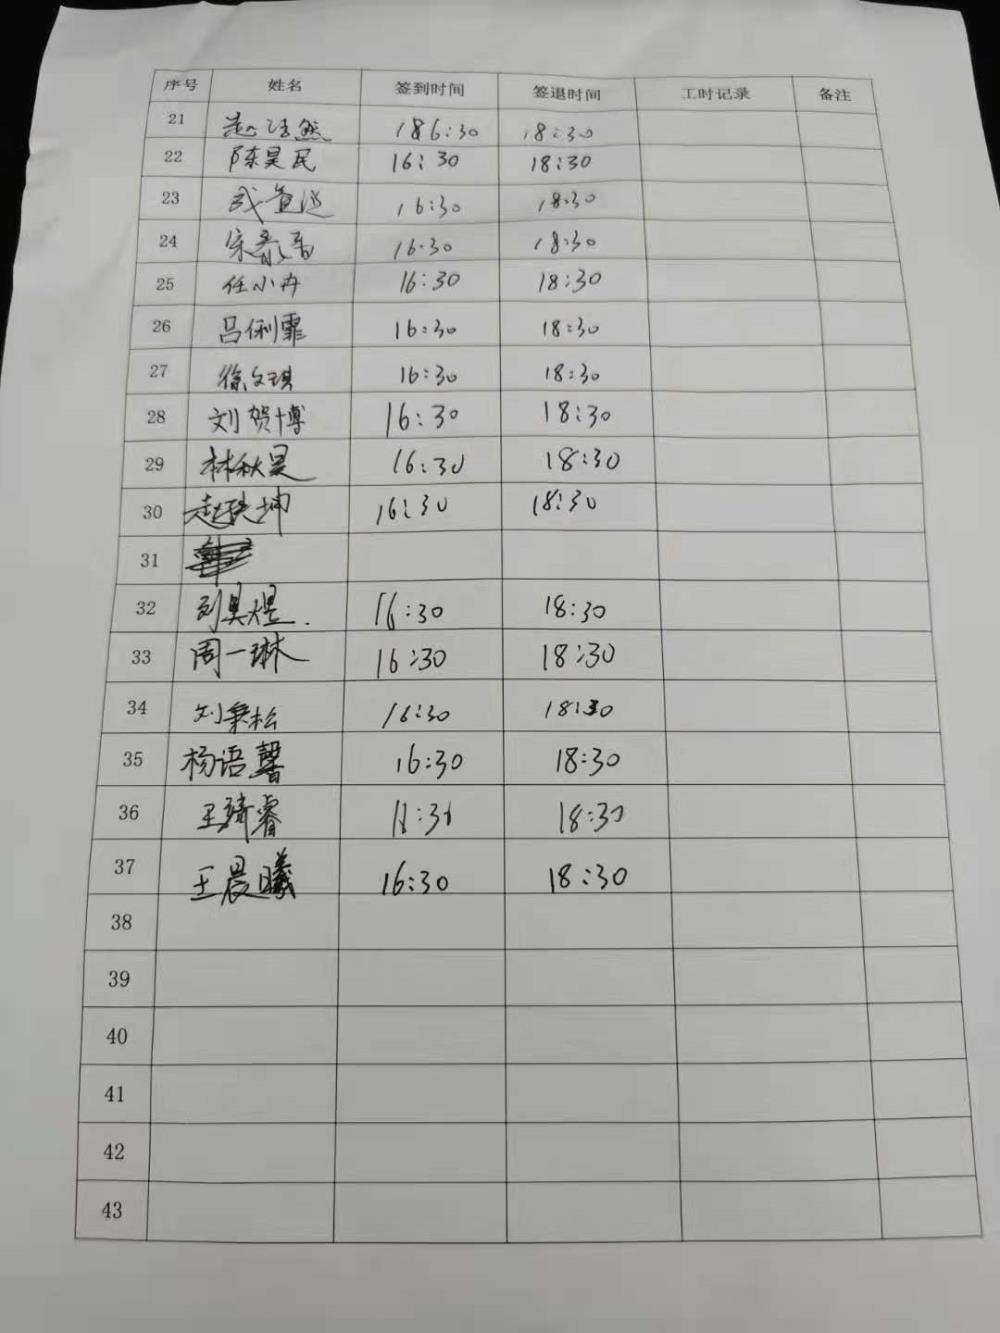 序号 姓名 签到时间 签退时间 工时记录 备注
21 赵浩然 186:30 18:30
22 陈昊民 16:30 18:30
23 16:30 18:30
24 宋 16:30 18:30
25 任小冉 16:30 18:30
26 吕俐霏 16:30 18:30
27 徐文琪 16:30 18:30
28 刘贺博 16:30 18:30
29 林秋昊 16:30 18:30
30 赵 坤 16:30 18:30
31
32 刘昊煜. 16:30 18:30
33 周一琳 16:30 18:30
34 刘秉松 16:30 18:30
35 杨语馨 16:30 18:30
36 王琦睿 18:30
37 王晨曦 16:30 18:30
38
39
40
41
42
43